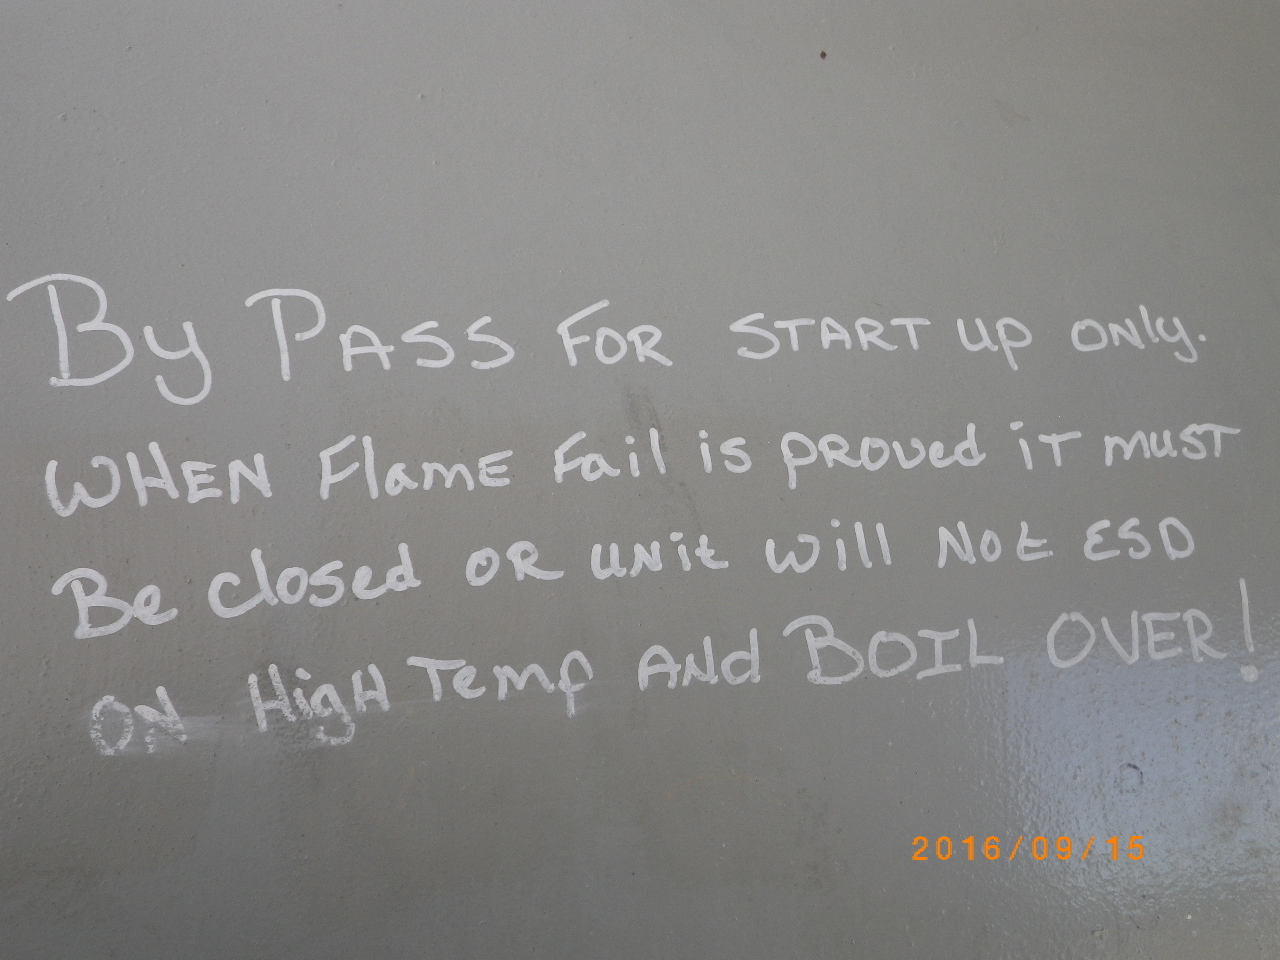 By PASS FOR START UP ONly.
WHEN FlamE Fail is PROVed iT musT
Be closed OR UNit will Not ESD
ON HigH Temp ANd BOIL OVER!
2016/09/15